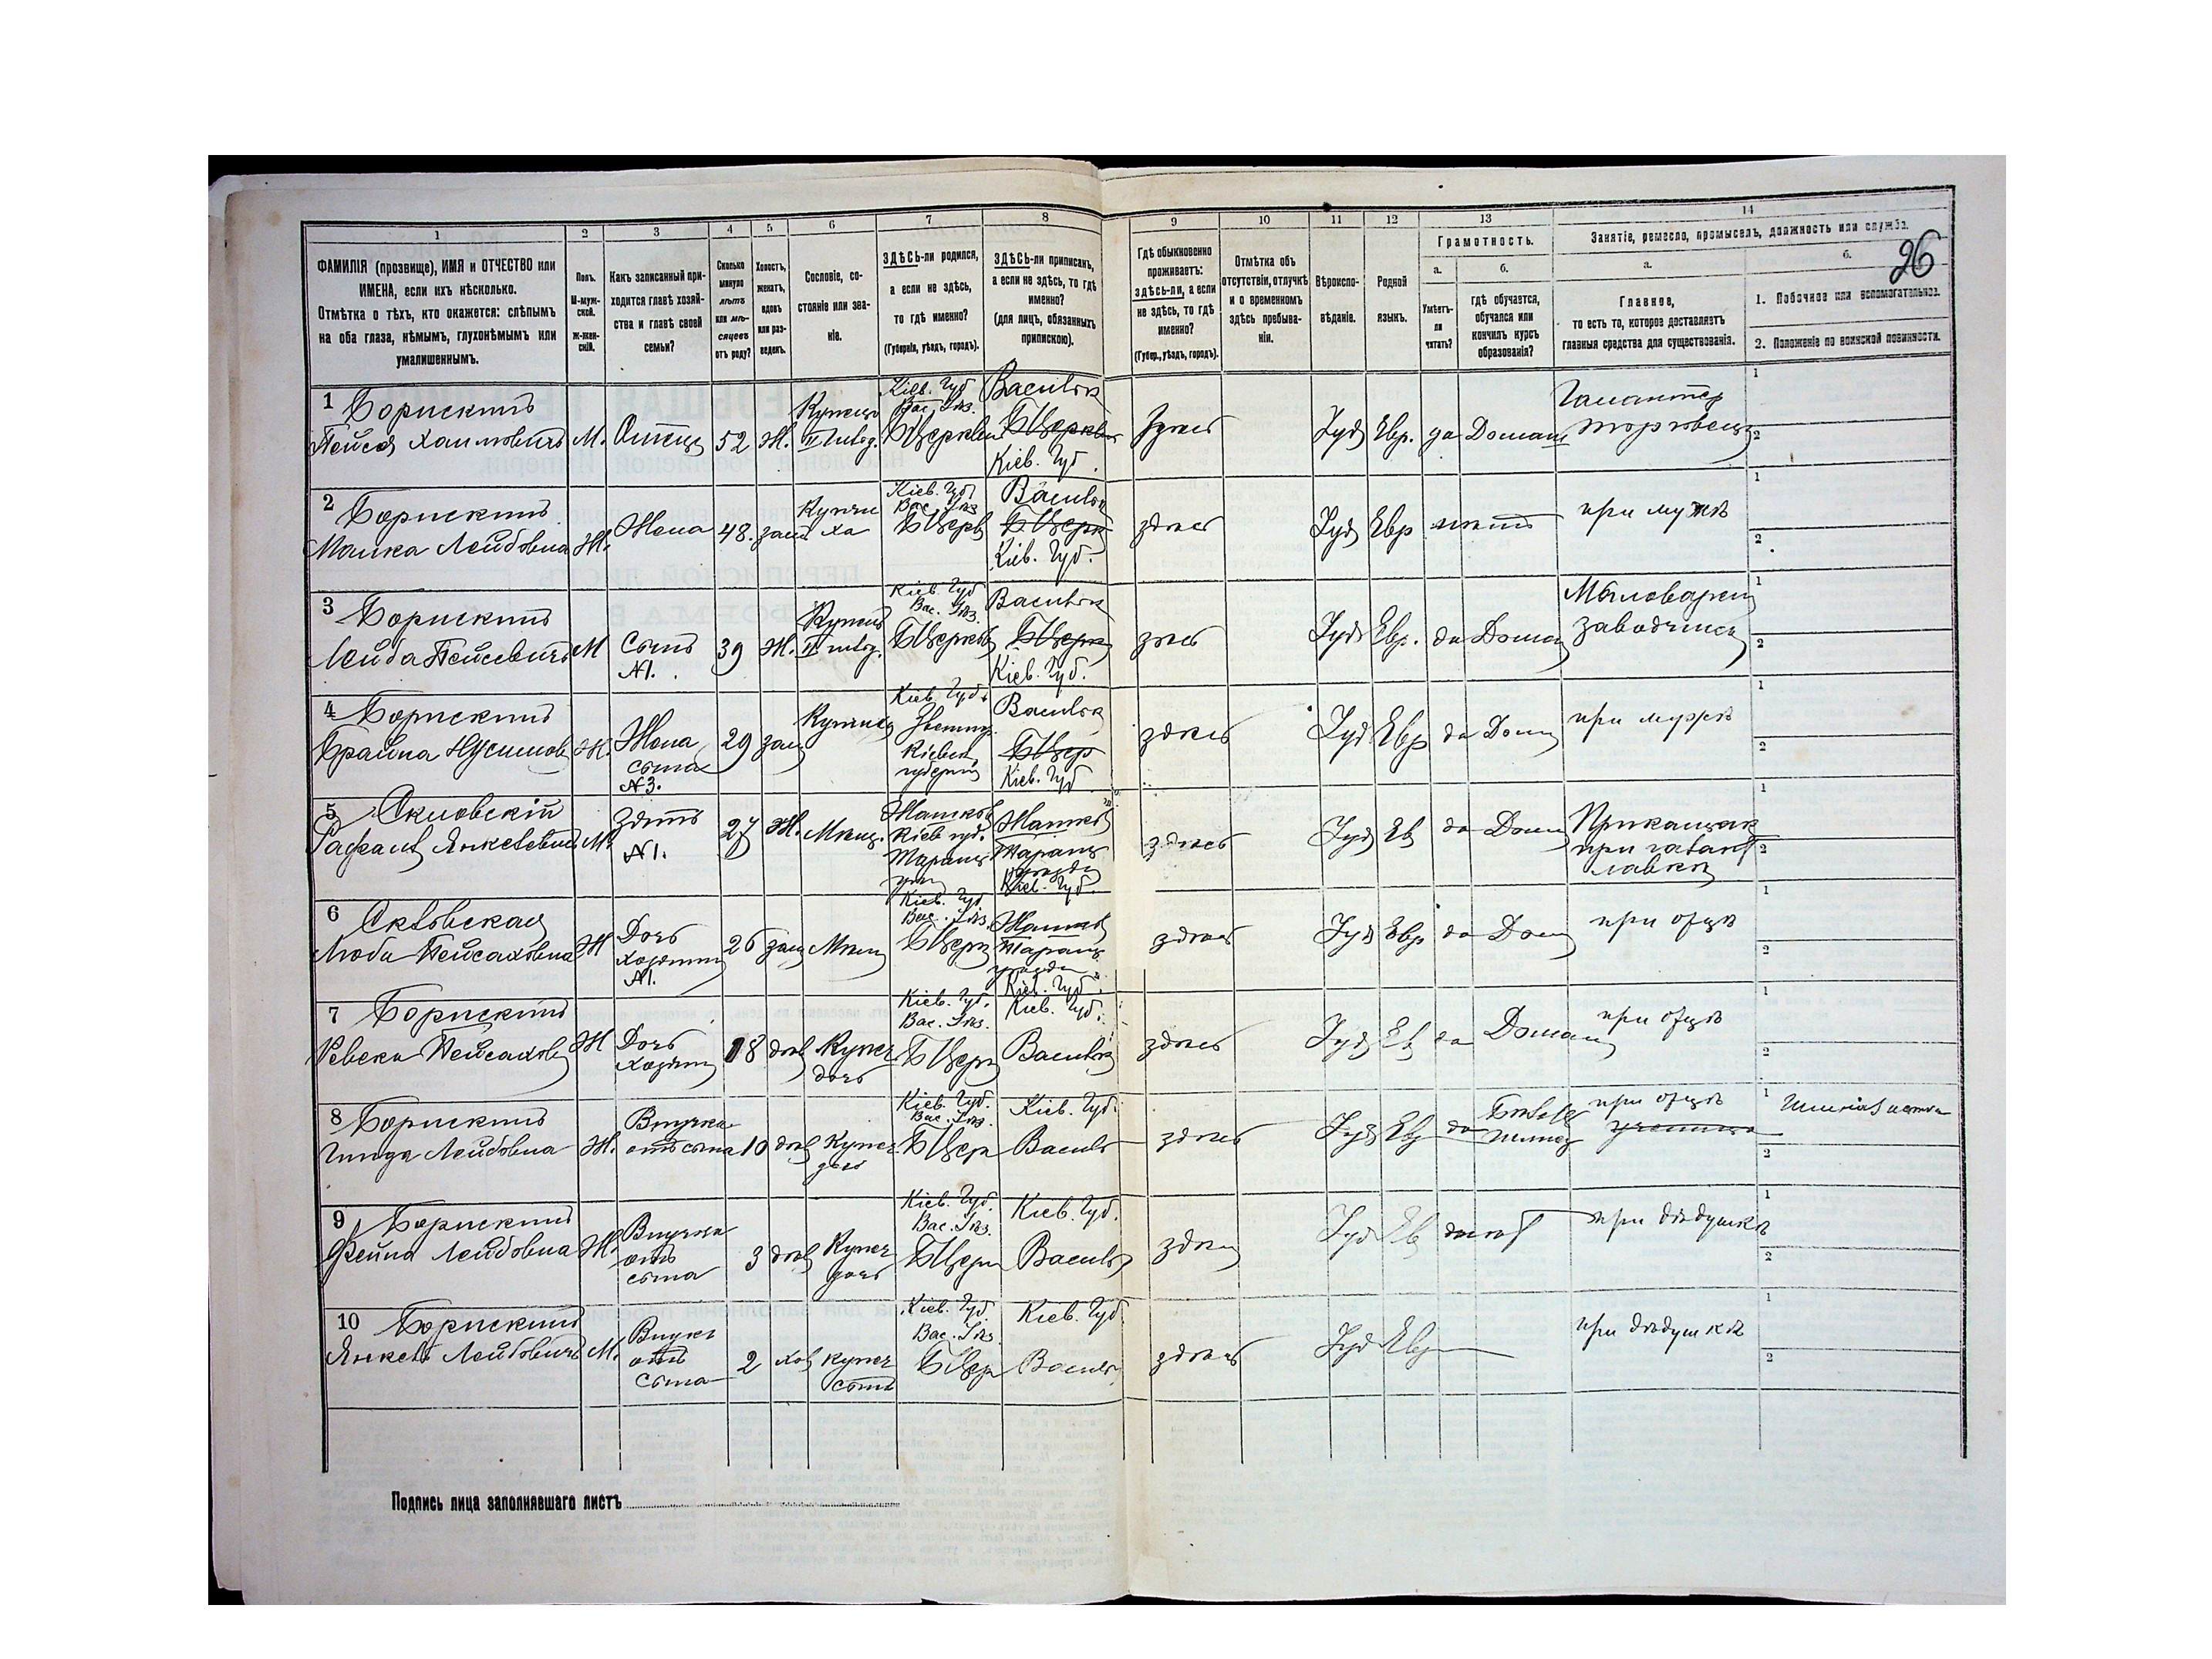 1
2
3
4
5
6
7
8
9
10
11
12
13
14
ФАМИЛІЯ (прозвище), ИМЯ и ОТЧЕСТВО или
ИМЕНА, если ихъ нѣсколько.
Отмѣтка о тѣхъ, кто окажется: слѣпымъ
на оба глаза, нѣмымъ, глухонѣмымъ или
умалишеннымъ.
Полъ.
М-муж-
ской.
ж-жен-
скій.
Какъ записанный при-
ходится главѣ хозяй-
ства и главѣ своей
семьи?
Сколько
минуло
лѣтъ
или мѣ-
сяцевъ
отъ роду?
Холостъ,
женатъ,
вдовъ
или раз-
веденъ.
Сословіе, со-
стояніе или зва-
ніе.
ЗДѢСЬ-ли родился,
а если не здѣсь,
то гдѣ именно?
(Губернія, уѣздъ, городъ).
ЗДѢСЬ-ли приписанъ,
а если не здѣсь, то гдѣ
именно?
(для лицъ, обязанныхъ
припискою).
Гдѣ обыкновенно
проживаетъ:
здѣсь-ли, а если
не здѣсь, то гдѣ
именно?
(Губер., уѣздъ, городъ).
Отмѣтка объ
отсутствіи, отлучкѣ
и о временномъ
здѣсь пребыва-
ніи.
Вѣроиспо-
вѣданіе.
Родной
языкъ.
Грамотность.
а.
Умѣетъ-
ли
читать?
б.
гдѣ обучается,
обучался или
кончилъ курсъ
образованія?
Занятіе, ремесло, промыселъ, должность или служба.
а.
Главное,
то есть то, которое доставляетъ
главныя средства для существованія.
б.
26
1. Побочное или вспомогательное.
2. Положеніе по воинской повинности.
1 Борискинъ
Пейсах Хаимовичъ М. Отецъ 52 Ж.
Купецъ
II гилд.
Кіев. Губ
Вас. Уѣз.
БЦерквы
Васильк
БЦерквы
Кіев. Губ.
Здѣсь
Іуд Евр. да Домаш
Галантер
торговецъ
2 Борискинъ
Малка Лейбовна Ж. Жена 48. зам
Купчи
ха
Кіев. Губ
Вас. Уѣз
БЦерк
Васильк
БЦерк
Кіев. Губ.
здѣсь
Іуд Евр нѣтъ
при мужѣ
3 Борискинъ
Лейба Пейсевичъ М
Сынъ
№1.
39 Ж.
Купецъ
II гилд.
Кіев. Губ
Вас. Уѣз.
БЦерковь
Васильк
БЦерк
Кіев. Губ.
здѣсь
Іуд Евр. да Дома
Мыловарен
заводчикъ
4 Борискинъ
Ж.
Жена
сына
№3.
29 зам
Купчих
Кіев. Губ.
Кіевск
губерніи
Васильк
БЦер
Кіев. Губ
здѣсь
Іуд Евр да Дом
при мужѣ
5
Рафаилъ Янкелевичъ М
Зять
№1.
27 Ж. Мѣщ.
Жашков
Кіев губ.
Таращ
Жашков
Таращ
уѣзда
Кіев. Губ.
здѣсь
Іуд Ев да Дом
Прикащик
при галант
лавкѣ
6
Люба Пейсаховна Ж
Дочь
Хозяина
№1.
26 зам Мѣщ
Кіев. Губ
Вас. Уѣз
БЦерк
Жашков
Таращ
уѣзда
Кіев. Губ.
здѣсь
Іуд Евр да Дом
при отцѣ
7 Борискинъ
Ревека Пейсахов Ж
Дочь
Хозяина
18 дѣв
Купеч
дочь
Кіев. Губ.
Вас. Уѣз.
БЦерк
Кіев. Губ.
Васильк
здѣсь
Іуд Ев да Домаш
при отцѣ
8 Борискинъ
Лейбовна Ж.
Внучка
отъ сына
10 дѣв
Купеч
дочь
Кіев. Губ.
Вас. Уѣз.
БЦерк
Кіев. Губ.
Василь
здѣсь
Іуд Ев да
при отцѣ
ученица
9 Борискинъ
Фейга Лейбовна Ж.
Внучка
отъ
сына
3 дѣв
Купеч
дочь
Кіев. Губ.
Вас. Уѣз.
БЦерк
Кіев. Губ.
Васильк
здѣс
Іуд Ев
при дѣдушкѣ
10 Борискинъ
Янкель Лейбовичъ М.
Внукъ
отъ
сына
2 хол
купеч
сынъ
Кіев. Губ.
Вас. Уѣз.
БЦер
Кіев. Губ.
Васильк
здѣсь
Іуд Евр
при дѣдушкѣ
Подпись лица заполнявшаго листъ